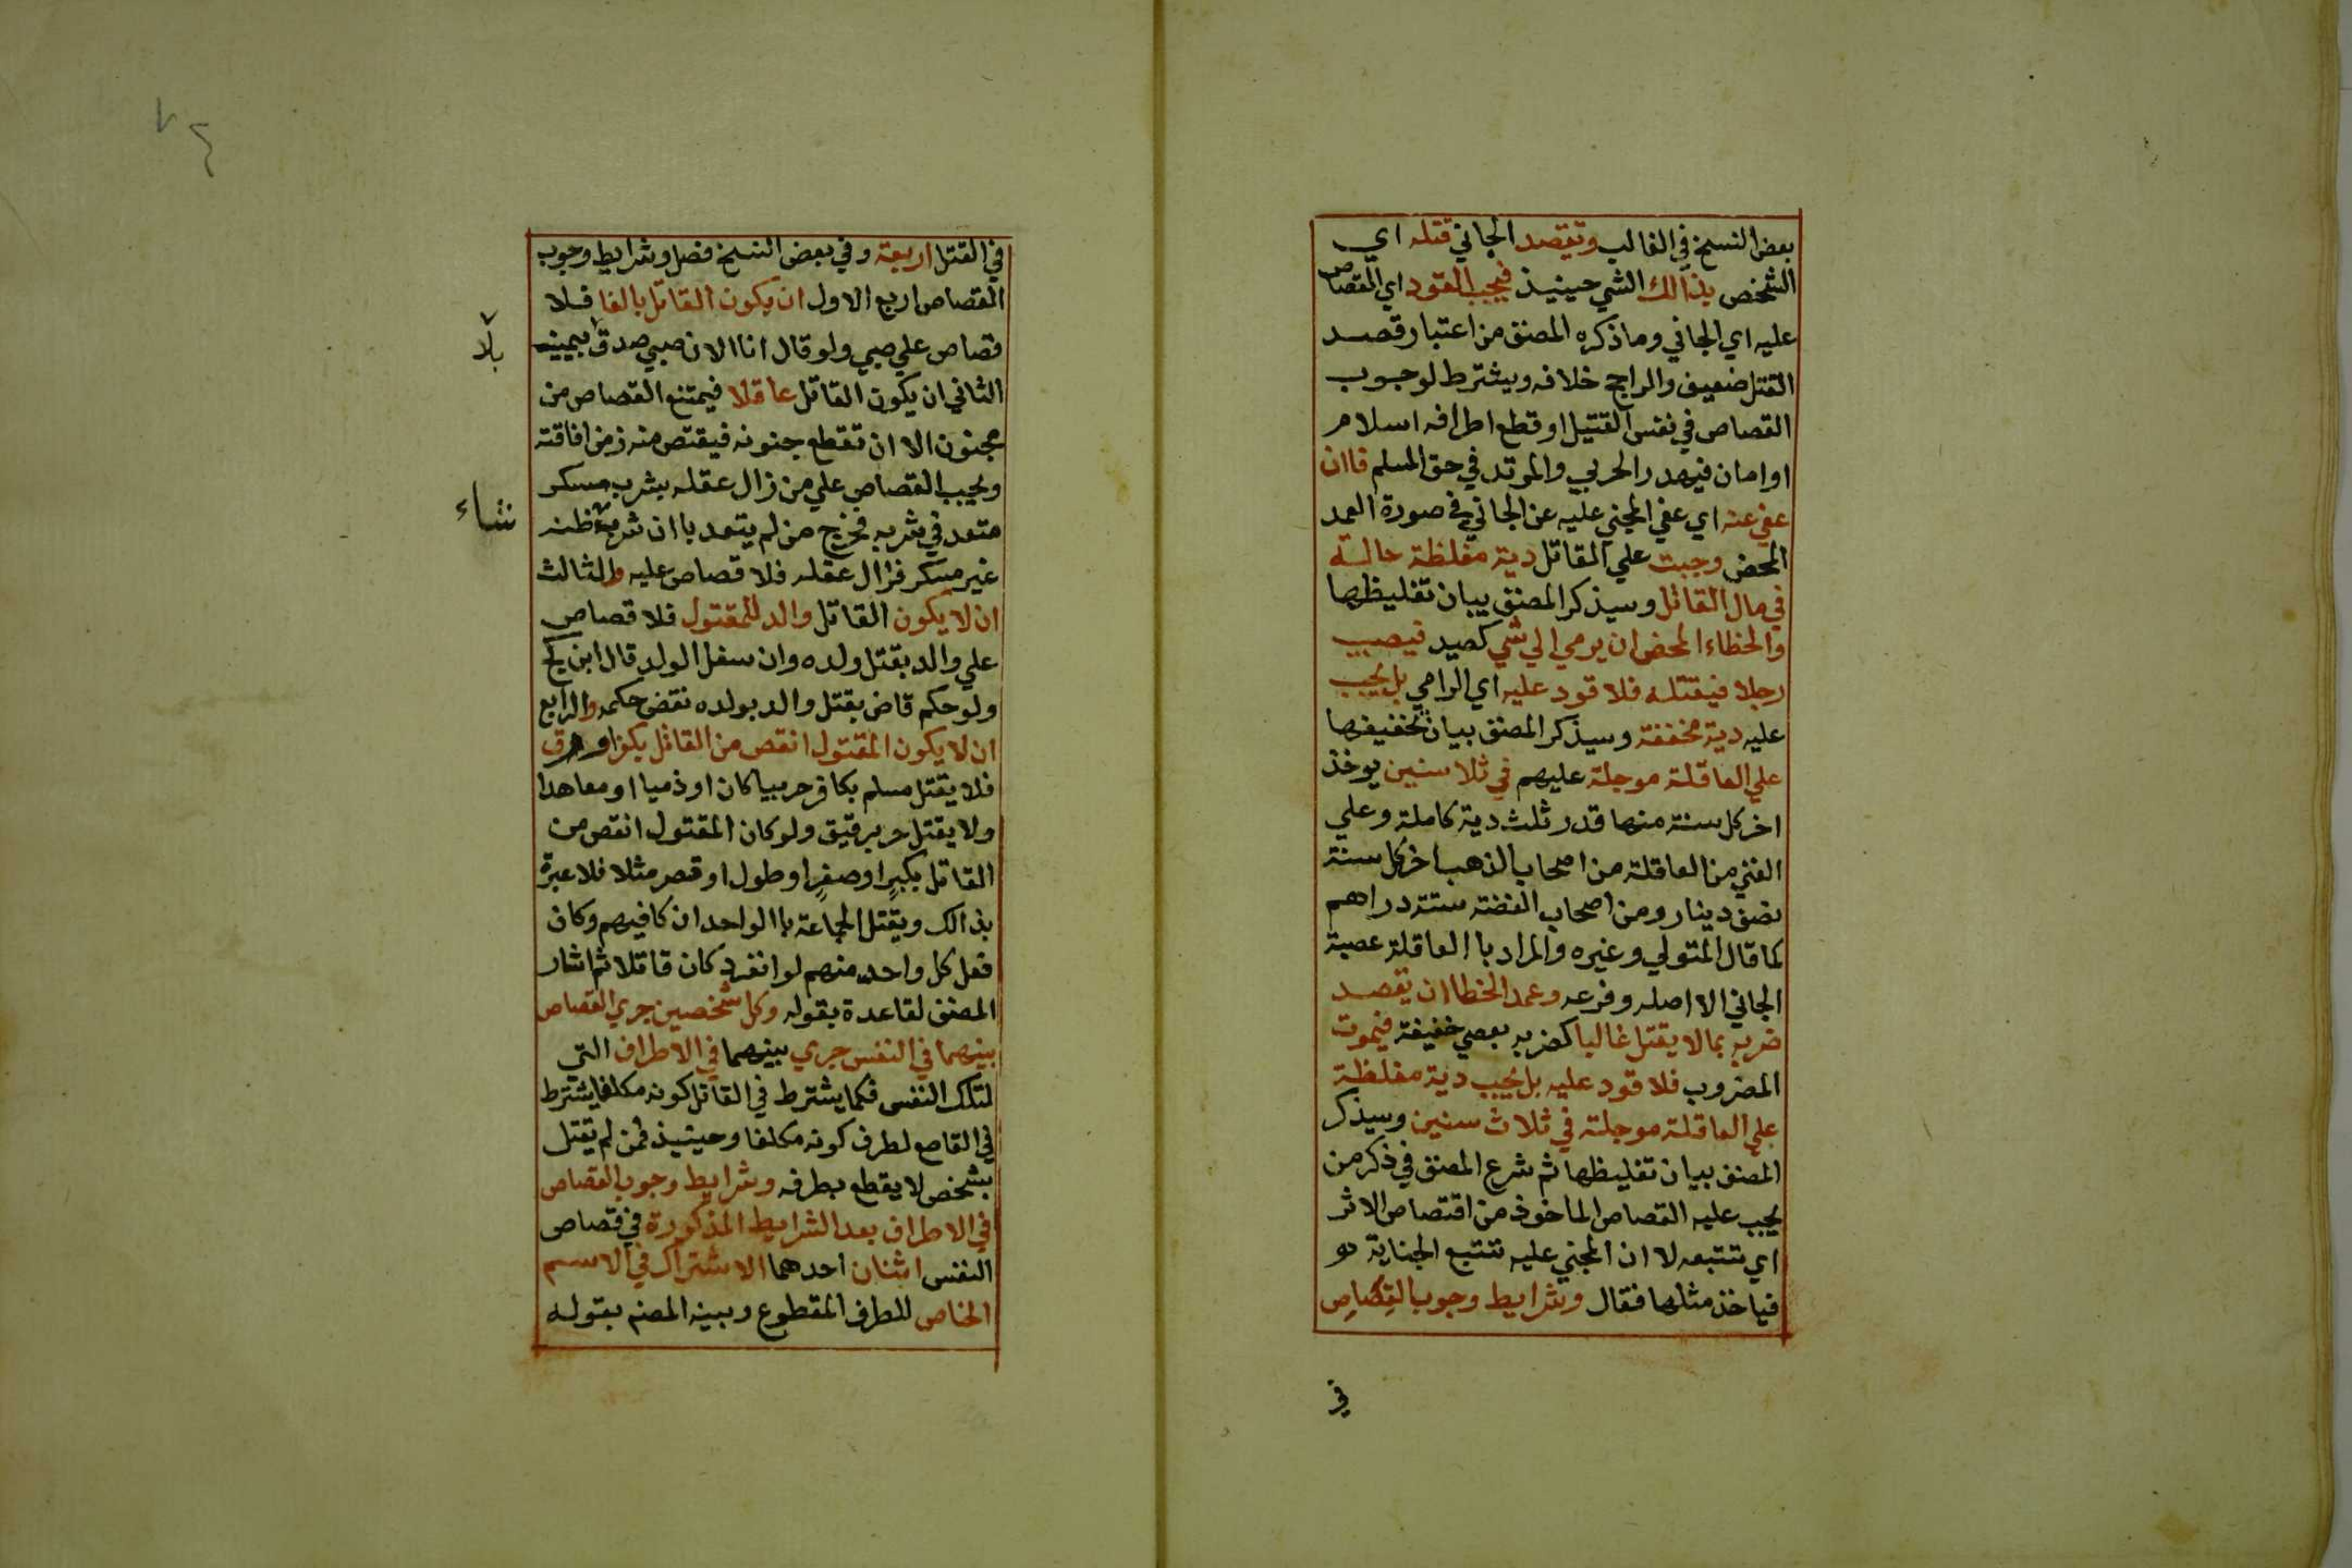 بعض النسخ في الغالب وتقصد الجاني قتله اي
الشخص بذالك الشي حينيذ فيجب القود اي القصاص
عليه اي الجاني وما ذكره المصنف من اعتبار قصد
القتل ضعيف والراجح خلافه ويشترط لوجوب
القصاص في نفس القتيل او قطع اطرافه اسلام
او امان فيهدر الحربي والمرتد في حق المسلم فاان
عفي عنه اي عفي المجني عليه عن الجاني في صورة العمد
المحض وجبت علي القاتل دية مغلظة حالة
في مال القاتل وسيذكر المصنف بيان تغليظها
والخطاء المحض ان يرمي الي شي كصيد فيصيب
رجلا فيقتله فلا قود عليه اي الرامي بل يجب
عليه دية مخففة وسيذكر المصنف بيان تخفيفها
علي العاقلة موجلة عليهم في ثلا سنين يوخذ
اخر كل سنة منها قدر ثلث دية كاملة وعلي
الغني من العاقلة من اصحاب الذهب اخر كل سنة
نصف دينار ومن اصحاب الفضة ستة دراهم
كما قال المتولي وغيره والمراد باالعاقلة عصبة
الجاني الا اصله وفرعه وعمد الخطا ان يقصد
ضربه بما لا يقتل غالبا كضربه بعصي خفيفة فيموت
المضروب فلا قود عليه بل يجب دية مغلظة
علي العاقلة موجلة في ثلاث سنين وسيذكر
المصنف بيان تغليظها ثم شرع المصنف في ذكر من
يجب عليه القصاص الماخوذ من اقتصاص الاثر
اي تتبعه لا ان المجني عليه تتبع الجناية
فياخذ مثلها فقال وشرايط وجوب القصاص
في
في القتل اربعة وفي بعض النسخ فصل وشرايط وجوب
القصاص اربع الاول ان يكون القاتل بالغا فلا
قصاص علي صبي ولو قال انا الان صبي صدق بيمينه
بلا
الثاني ان يكون القاتل عاقلا فيمتنع القصاص من
مجنون الا ان تقطع جنونه فيقتص منه زمن افاقته
ويجب القصاص علي من زال عقله بشرب مسكر
متعد في شربه فخرج من لم يتعد باان شرب ظنه
شاء
غير مسكر فزال عقله فلا قصاص عليه والثالث
ان لا يكون القاتل والد للمقتول فلا قصاص
علي والد بقتل ولده وان سفل الولد قال ابن كج
ولو حكم قاض بقتل والد بولده نقض حكمه والرابع
ان لا يكون المقتول انقص من القاتل بكفر او رق
فلا يقتل مسلم بكافر حربيا كان او ذميا او معاهدا
ولا يقتل حر برقيق ولو كان المقتول انقص من
القاتل بكبر او صغر او طول او قصر مثلا فلا عبرة
بذالك ويقتل الجماعة باالواحد ان كافيهم وكان
فعل كل واحد منهم لو انفرد كان قاتلا ثم اشار
المصنف لقاعدة بقوله وكل شخصين جري القصاص
بينهما في النفس جري بينهما في الاطراف التي
لتلك النفس فكما يشترط في القاتل كونه مكلفا يشترط
في القاطع لطرف كونه مكلفا وحينيذ فمن لم يقتل
بشخص لا يقطع بطرفه وشرايط وجوب القصاص
في الاطراف بعد الشرايط المذكورة في قصاص
النفس اثنان احدهما الاشتراك في الاسم
الخاص للطرف المقطوع وبينه المصنم بقوله